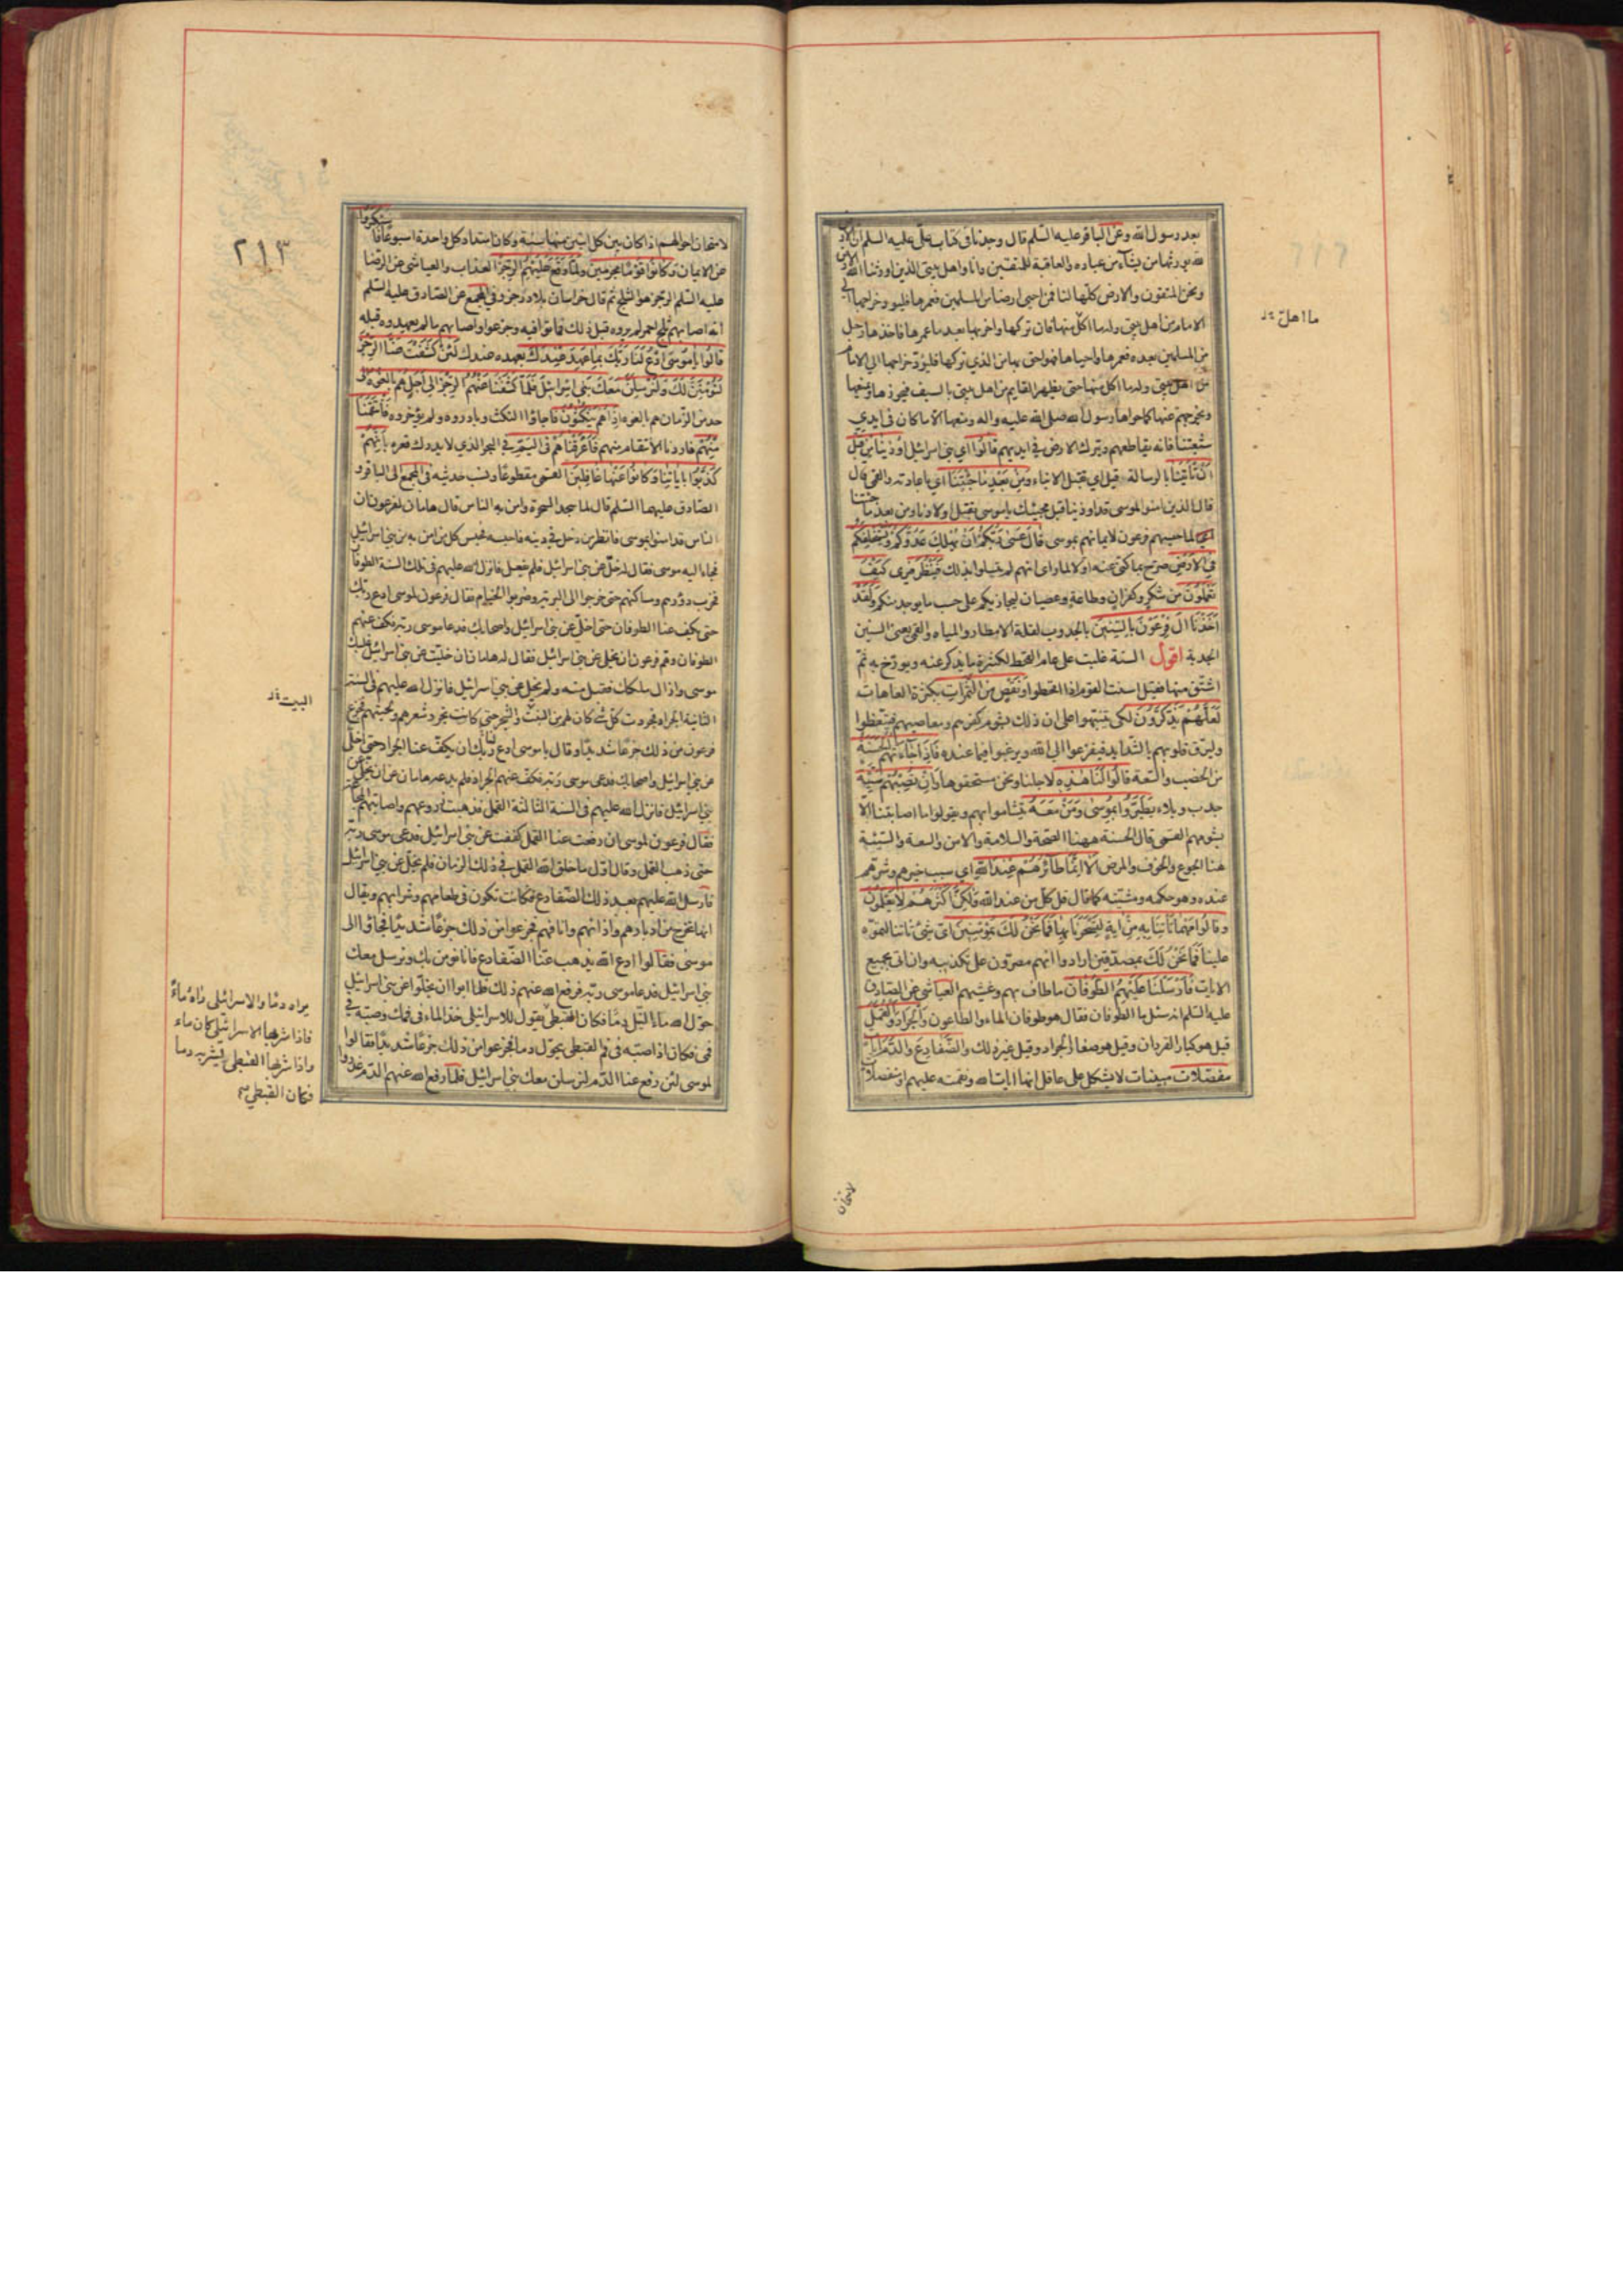 بعد رسول الله وعن الباقر عليه السلم قال وجدنا في كتاب علي عليه السلم ان الارض
لله يورثها من يشآء من عباده والعاقبة للمتقين وانا واهل بيتي الذين اورثنا الله الارض
ونحن المتقون والارض كلها لنا فمن احيى ارضا من المسلمين فعمرها فليؤد خراجها الى
الامام من اهل بيتي وله ما اكل منها فان تركها واخربها بعد ما عمرها فاخذها رجل
من المسلمين بعده فعمرها واحياها فهو احق بها من الذي تركها فليؤد خراجها الى الامام
من اهل بيتي وله ما اكل منها حتى يظهر القايم من اهل بيتي بالسيف فيحوزها ويمنعها
ويخرجهم عنها كما حواها رسول الله صلى الله عليه واله ومنعها الا ما كان في ايدي
شيعتنا فانه يقاطعهم ويترك الارض في ايديهم قالوا اي بني اسرائيل اوذينا من قبل
ان تأتينا بالرسالة قيل اي بقتل الابناء ومن بعد ما جئتنا اي باعادته والقمي قال
قال الذين امنوا لموسى قد اوذينا قبل مجيئك يا موسى بقتل اولادنا ومن بعد ما جئتنا
لما حبسهم فرعون لايمانهم بموسى قال عسى ربكم ان يهلك عدوكم ويستخلفكم
في الارض صرح بما كنى عنه اولا لما راى انهم لم يتسلوا بذلك فينظر فيرى كيف
تعملون من شكر وكفران وطاعة وعصيان ليجازيكم على حسب ما يوجد منكم ولقد
اخذنا ال فرعون بالسنين بالجدوب لقلة الامطار والمياه والقمي يعني السنين
الجدبة اقول السنة غلبت على عام القحط لكثرة ما يذكر عنه ويورخ به ثم
اشتق منها فقيل اسنت القوم اذا اقحطوا ونقص من الثمرات بكثرة العاهات
لعلهم يذكرون لكي يتنبهوا على ان ذلك بشوم كفرهم ومعاصيهم فيتعظوا
وليرق قلوبهم بالشدايد فيفزعوا الى الله ويرغبوا فيما عنده فاذا جاءتهم الحسنة
من الخصب والسعة قالوا لنا هذه لاجلنا ونحن مستحقوها وان تصبهم سيئة
جدب وبلاء يطيروا بموسى ومن معه يتشاموا بهم ويقولوا ما اصابتنا الا
بشومهم القمي قال الحسنة ههنا الصحة والسلامة والامن والسعة والسيئة
هنا الجوع والخوف والمرض الا انما طائرهم عند الله اي سبب خيرهم وشرهم
عنده وهو حكمه ومشيته كما قال قل كل من عند الله ولكن اكثرهم لا يعلمون
وقالوا مهما تأتنا به من اية لتسحرنا بها فما نحن لك بمؤمنين اي شئ تأتنا لتموه
علينا فما نحن لك بمصدقين ارادوا انهم مصرون على تكذيبه وان اتى بجميع
الايات فأرسلنا عليهم الطوفان ما طاف بهم وغشيهم العياشي عن الصادق
عليه السلم انه سئل ما الطوفان فقال هو طوفان الماء والطاعون والجراد والقمل
قيل هو كبار القردان وقيل هو صغار الجراد وقيل غير ذلك والضفادع والدم ايات
مفصلات مبينات لا يشكل على عاقل انها ايات الله ونقمته عليهم او مفصلات
ما اهل
لامتحان
لامتحان احوالهم اذ كان بين كل اثنتين منها سنة وكان امتداد كل واحدة اسبوعا فاستكبروا
عن الايمان وكانوا قوما مجرمين ولما وقع عليهم الرجز العذاب والعياشي عن الرضا
عليه السلم الرجز هو الثلج ثم قال خراسان بلاد رجز وفي المجمع عن الصادق عليه السلم
انه اصابهم ثلج احمر لم يروه قبل ذلك فماتوا فيه وجزعوا واصابهم ما لم يعهدوه قبله
قالوا يا موسى ادع لنا ربك بما عهد عندك بعهده عندك لئن كشفت عنا الرجز
لنؤمنن لك ولنرسلن معك بني اسرائيل فلما كشفنا عنهم الرجز الى اجل هم بالغوه الى
حد من الزمان هم بالغوه اذا هم ينكثون فاجاؤا النكث وبادروه ولم يؤخروه فانتقمنا
منهم فاردنا الانتقام منهم فأغرقناهم في اليم في البحر الذي لا يدرك قعره بأنهم
كذبوا بأياتنا وكانوا عنها غافلين القمي مقطوعا ونسب حديثه في المجمع الى الباقر و
الصادق عليهما السلم قال لما سجد السحرة وامن به الناس قال هامان لفرعون ان
الناس قد امنوا بموسى فانظر من دخل في دينه فاحبسه فحبس كل من امن به من بني اسرائيل
فجاء اليه موسى فقال له خل عن بني اسرائيل فلم يفعل فانزل الله عليهم في تلك السنة الطوفان
فخرب دورهم ومساكنهم حتى خرجوا الى البرية وضربوا الخيام فقال فرعون لموسى ادع ربك
حتى يكف عنا الطوفان حتى اخلي عن بني اسرائيل واصحابك فدعا موسى ربه فكف عنهم
الطوفان وهم فرعون ان يخلي عن بني اسرائيل فقال له هامان ان خليت عن بني اسرائيل غلبك
موسى وازال ملكك فقبل منه ولم يخل عن بني اسرائيل فانزل الله عليهم في السنة
الثانية الجراد فجردت كل شئ كان لهم من النبت والشجر حتى كانت تجرد شعرهم ولحيتهم فجزع
فرعون من ذلك جزعا شديدا وقال يا موسى ادع لنا ربك ان يكف عنا الجراد حتى اخلي
عن بني اسرائيل واصحابك فدعى موسى ربه فكف عنهم الجراد فلم يدعه هامان ان يخلي عن
بني اسرائيل فانزل الله عليهم في السنة الثالثة القمل فذهبت زروعهم واصابتهم المجاعة
فقال فرعون لموسى ان دفعت عنا القمل كففت عن بني اسرائيل فدعى موسى ربه
حتى ذهب القمل وقال اول ما خلق الله القمل في ذلك الزمان فلم يخل عن بني اسرائيل
فارسل الله عليهم بعد ذلك الضفادع فكانت تكون في طعامهم وشرابهم ويقال
انها تخرج من ادبارهم واذانهم وانافهم فجزعوا من ذلك جزعا شديدا فجاؤا الى
موسى فقالوا ادع الله يذهب عنا الضفادع فانا نؤمن بك ونرسل معك
بني اسرائيل فدعا موسى ربه فرفع الله عنهم ذلك فلما ابوا ان يخلوا عن بني اسرائيل
حول الله ماء النيل دما فكان القبطي يقول للاسرائيلي خذ الماء في فمك وصبه في
فمي فكان اذا صبه في فم القبطي يحول دما فجزعوا من ذلك جزعا شديدا فقالوا
لموسى لئن رفع عنا الدم لنرسلن معك بني اسرائيل فلما رفع الله عنهم الدم غدروا
٢١٣
البيت
يراه دما والاسرائيلي راه ماء
فاذا شربها الاسرائيلي كان ماء
واذا شربها القبطي يشربه دما
فكان القبطي